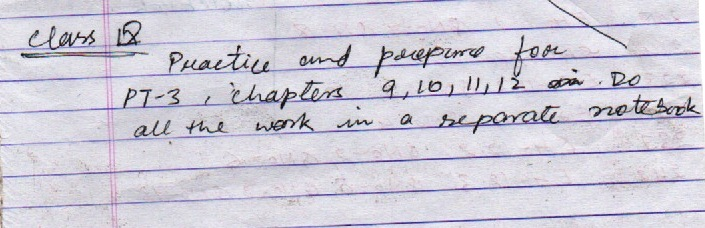 Class
Practice and prepare for
PT-3, chapters 9, 10, 11, 12 . Do
all the work in a separate notebook